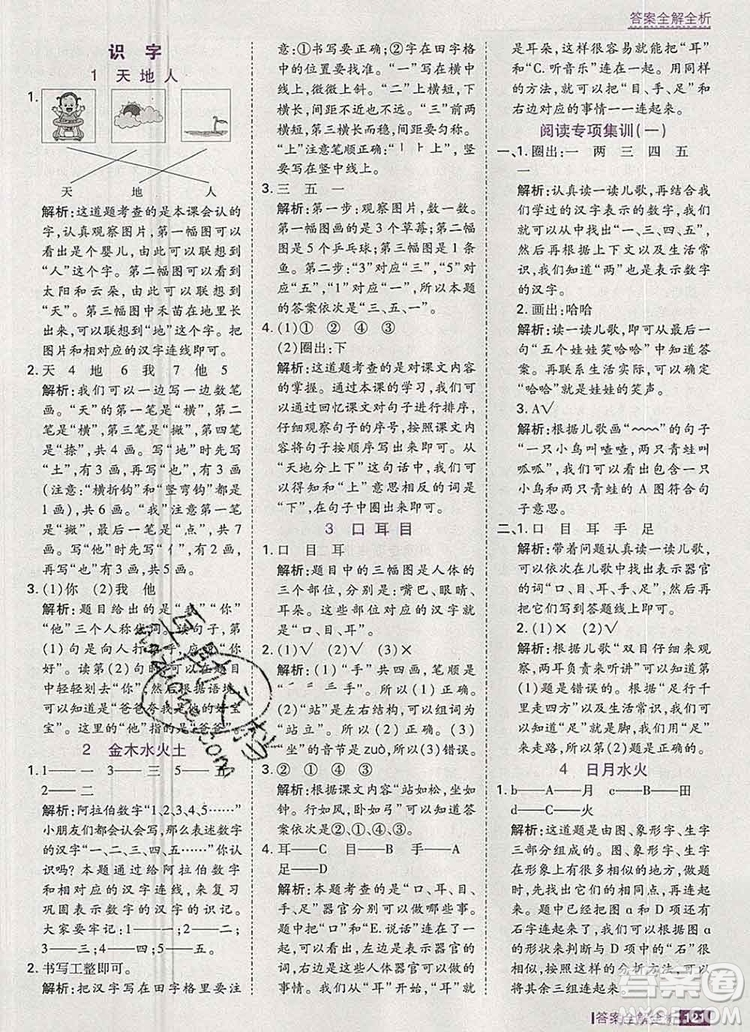 答案全解全析
识字
1 天地人
1.
天 地 人
解析:这道题考查的是本课会认的
字,认真观察图片。第一幅图可以
看出是个婴儿,由此可以联想到
“人”这个字。第二幅图可以看到
太阳和云朵,由此可以联想到
“天”。第三幅图中禾苗在地里长
出来,可以联想到“地”这个字。把
图片和相对应的汉字连线即可。
2. 天 4 地 6 我 7 他 5
解析:我们可以一边写一边数笔
画。“天”的第一笔是“横”,第二
笔是“横”,第三笔是“撇”,第四
笔是“捺”,共4画。写“地”时先写
“土”,有3画,再写“也”,有3画
(注意:“横折钩”和“竖弯钩”我们
都看成一画),共6画。写“我”时
注意第一笔是“撇”,最后一笔是
“点”,共7画。写“他”时先写“亻”,
有2画,再写“也”,有3画,共5画。
3. (1)你 (2)我 他
解析:题目给出的是“我”“你”
“他”三个人称代词。读句子,第
(1)句
中轻轻划去“你”,然后根据语境
可以知道是“爸爸夸我是他的宝
宝”。这里的“他”指的是“爸爸”。
2 金木水火土
1. 1——一 3——三 5——五
2——二
解析:阿拉伯数字“1,2,3,4,5……”
小朋友们都会认会写,对应数字的
“一、二、三、四、五……”也可以快
速写出来。本题通过给阿拉伯数
字找相应的汉字来连线,来复习
巩固表示数字的汉字的识记。
大家要牢记:1——一 2——二
3——三 4——四 5——五……
2. 书写工整即可。
解析:把汉字写在田字格里要注
意:①书写要正确;②在田字格中
的位置要找准。“一”写在横中
线,微微上斜。“二”上横短,下横
长,间距不近也不过大。“三”上
横短,中横更短,下横长,间距要
匀称。“上”注意书写时笔顺要正
确,竖写在竖中线上。
3. 三 五 一
解析:第一步:观察图片,数一数。
第一幅图是3朵花;第二幅图是
5个乒乓球;第三幅图是1条
鱼。第二步:“3”对应“三”,“5”对
应“五”,“1”对应“一”。所以本题
的答案依次是“三、五、一”。
4. (1)① ② ④ ③
(2)圈出:下
解析:这道题考查的是对课文内容
的记忆,结合本课的学习,我们可以
通过回忆课文对句子进行排序,
仔细观察句子,书写出来即可。从
“天地分上下”这句话可以直接
知道,与“上”意思相反的词是
“下”,在句子中圈出来即可。
3 口耳目
1. 口 目 耳
解析:题目中的三幅图是人体的
三个部位,分别是嘴巴、眼睛、
耳朵。这些部位对应的汉字就是
“口、目、耳”。
2. (1)√ (2)× (3)×
解析:(1)“手”共四画,笔顺是
“一 二 三 手”。所以是正确的。
(2)“站”是左右结构,可以组词
“站立”。所以是错误的。(3)
“坐”的音节是zuò,所以(3)错误。
3. ② ① ③ ④
解析:根据课文内容“站如松,坐
如钟。行如风,卧如弓”可以知道答案
依次是②①③④。
4. 耳——C 目——B 手——A
足——D
解析:本题考查的是“口、耳、目、
手、足”器官分别对应的功能。
题目中把“口”和“E.说话”连在了
一起,通过观察可以知道连线要
把这些人体器官和它们所能做的
事情连在一起。从“耳”可以联想到
是耳朵,这样就可以把“耳”
和“C.听音乐”连在一起。用同样
的方法,就可以把口、目、手、足和
右边对应的事情一一连起来。
阅读专项集训(一)
一、1. 圈出:一 两 三 四 五
一
解析:认真读一读儿歌,把和我们
学过的汉字表示的数字“一、三、
四、五”,根据上下文以及生活常
识,可以知道“两”也是表示数字
的汉字。
2. 画出:哈哈
解析:阅读一读儿歌,可以从“第一
句“五个娃娃笑哈哈”中知道答
案。再联系生活实际,可以知道
“哈哈”就是娃娃的笑声。
3. A√
解析:根据儿歌画“﹏﹏”的句子
“一只小鸟喳喳喳,两只青蛙叫
呱呱”,可以看出句子描写的是一只
小鸟和两只青蛙的A图片符合
句子意思。
二、1. 口 目 耳 手 足
解析:带着问题认真读一读儿歌,
可以在第一句话中找到表示器官
的词“口、目、耳、手、足”,然后
书写到答题处即可。
2. (1)× (2)√
解析:(1)根据儿歌“双目仔细来观
察,两耳负责听声音”可以知道第(1)
题是错误的。(2)根据“足行千
里走四方”可以知道“足”是用
来走路,所以第(2)题是正确的。
4 日月水火
1. b——A——月 c——B——田
d——C——火
解析:这道题是由图、象形字、生字
三部分组成的。图a是石头,石字
在象形上可以看出来是有个尖尖
的上部,可以根据图a还有
石字连线,我们可以根据图a
的形状来判断与D项中的“石”很
相似。用同样的分析方法,可以将
剩余的连起来。
答案全解全析 121